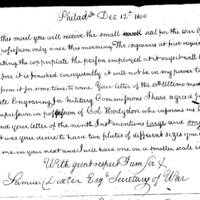 Philada Dec 12th 1800
this mail you will receive the small seal for the War
possession only since this morning. The engraver at first
the person employed at it says it will
for it is finished consequently it will not be in my power to
from it for some time to come. Your letter of the 10th Ultimo
Plate Engraving for Military Commissions I have agreed
impression in possession of Col. Hodgdon who informs me
and your letter of the ninth Inst. mentions large and
it was your desire to have two plates of different sizes
me in your next and I will have one on a smaller scale
With great respect I am Sir &
Samuel Dexter Esqr Secretary of War